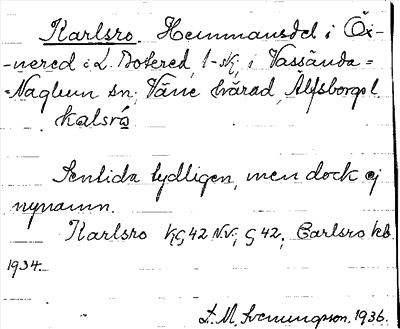 Karlsro. Hemmansdel i Öx-
-nered i L. Botered, 1-sk, i Vassända=
=Naglum sn; Väne härad, Älfsborgs l.
kalsrɷ
Sentida tydligen, men dock ej
nynamn.
Karlsro KG 42 NV; G 42; Carlsro kb
1934.
L. M. Svenungson. 1936.